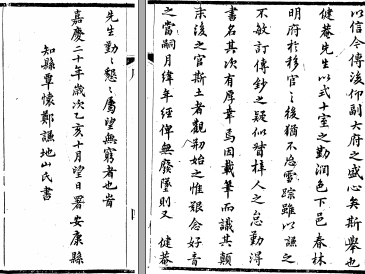 以信今傳後仰副大府之盛心矣斯舉也
健菴先生以弍十室之勤潤色下邑春林
明府於移官之後猶不忘雪踪雖以謙之
不敏訂傳鈔之疑似贊梓人之怠勤得
書名其次有厚幸焉因載筆而識其顛
末後之官斯土者觀刱始之惟艱念好音
之當嗣月緯年經俾無廢墜則又健菴
先生勤勤懇懇屬望無窮者也旹
嘉慶二十年歲次乙亥十月望日署安康縣
知縣覃懷鄭謙地山氏書